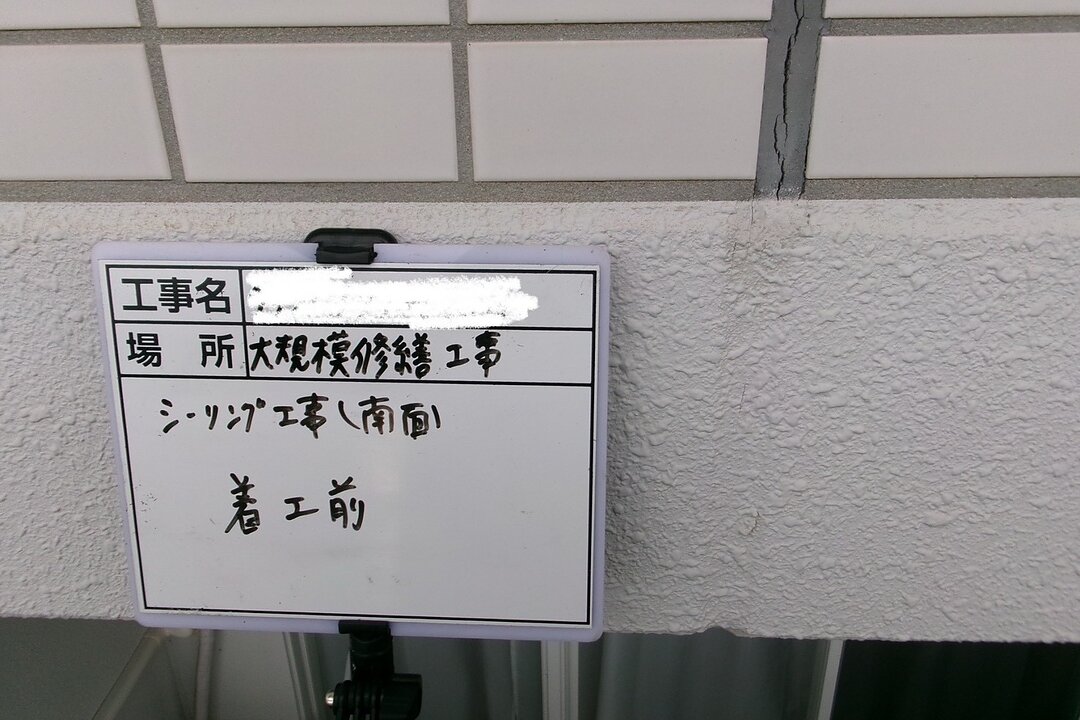 工事名
場所 大規模修繕工事
シーリング工事(南面)
着工前